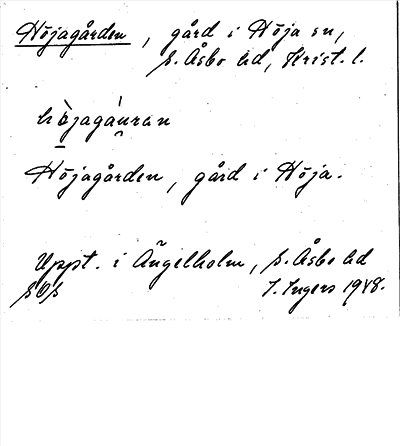 Höjagården, gård i Höja sn,
S. Åsbo hd, Krist. l.
höjagauran
Höjagården, gård i Höja.
Uppt. i Ängelholm, S. Åsbo hd
I. Ingers 1948.